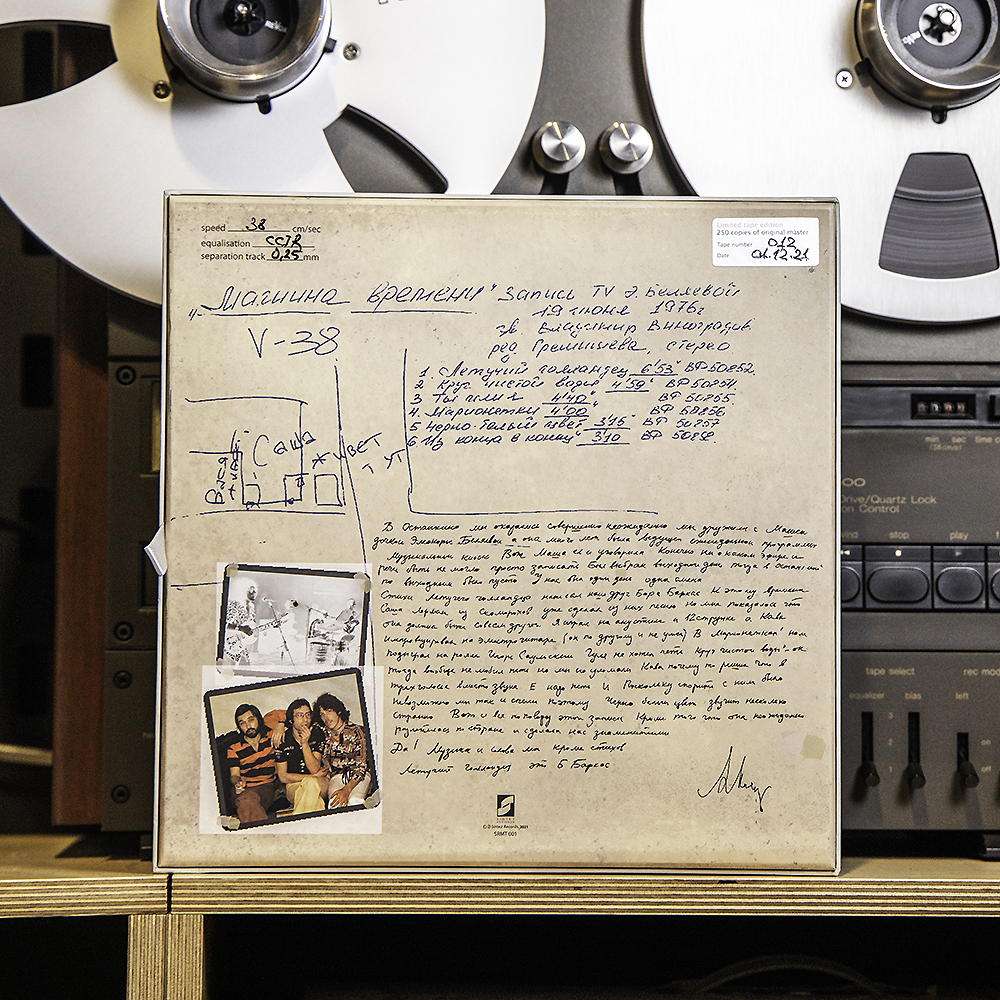 speed 38 cm/sec
equalisation CCIR
separation track 0,25 mm
Limited tape edition
250 copies of original master
Tape number 012
Date 01.12.21
„Машина времени" Запись TV Э. Беляевой
19 июня 1976г
зв. Владимир Виноградов
ред Гремишева, стерео
V-38
1 Летучий голландец 6'53" ВР50852
2 Круг чистой воды 4'59"
3 Ты или я 4'40"
4. Марионетки 4'00
5 Черно-белый цвет 3'15" ВР 50857
6 Из конца в конец" 3'10
Вася
Саша
живет
тут
В Останкино мы оказались совершенно неожиданно мы дружили с Машей
дочкой Элеоноры Беляевой а она много лет была ведущей ежегодной программы
Музыкальный киоск Вот Маша ее и уговорила Конечно ни о каком эфире и
речи быть не могло просто записать Был выбран выходной день тогда в Останкино
по выходным было пусто У нас был один день одна смена
Стихи Летучего голландца написал наш друг Боря Баркас К этому времени
Саша Лерман из Скоморохов уже сделал из них песню но мне показалось что
она должна быть совсем другой Я играл на акустике и 12струнке а Кава
импровизировал на электрогитаре (он по другому и не умел) В Марионетках нам
подыграл на рояле Игорь Саульский Гуля не хотел петь Круг чистой воды - он
тогда вообще не любил петь но мы его уломали Кава почему то решил что в
трехголосье вместо звука Е надо петь И Поскольку спорить с ним было
невозможно мы так и спели поэтому Черно белый цвет звучит несколько
странно Вот и все по поводу этой записи Кроме того что она неожиданно
разлетелась по стране и сделала нас знаменитыми
Да! Музыка и слова мои кроме стихов
Летучий голландец это Б Баркас
SINTEZ
RECORDS
© ℗ Sintez Records, 2021
SRMT 001
Drive/Quartz Lock
on Control
min sec
wind stop play
tape select
equalizer bias left
rec mode